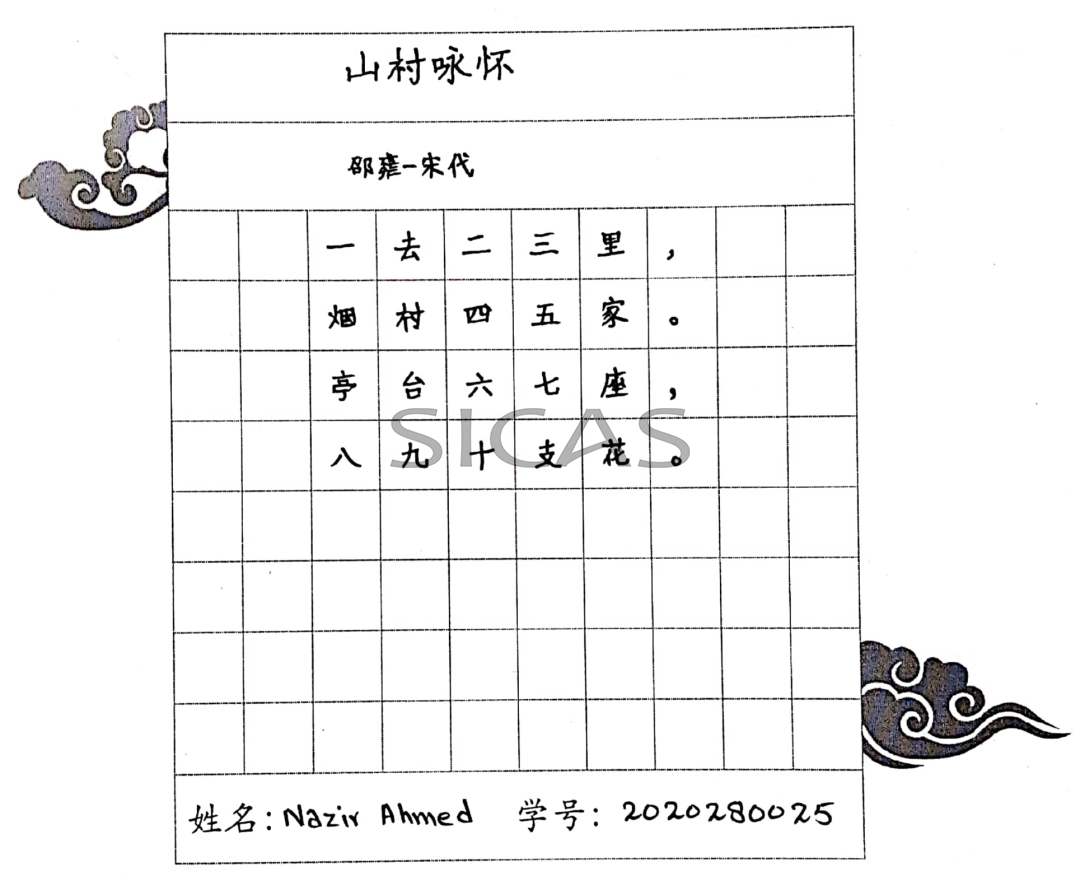 山村咏怀
邵雍-宋代
一去二三里，
烟村四五家。
亭台六七座，
八九十支花。
SICAS
姓名: Nazir Ahmed 学号: 2020280025